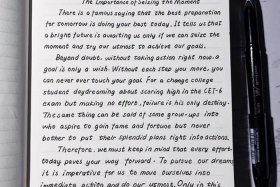 The Importance of Seizing the Moment
There is a famous saying that the best preparation
for tomorrow is doing your best today. It tells us that
a bright future is awaiting us only if we can seize the
moment and try our utmost to achieve our goals.
Beyond doubt, without taking action right now, a
goal is only a wish. Without each step you move, you
can never ever touch your goal. For a change college
student daydreaming about scoring high in the CET-6
exam but making no effort, failure is his only destiny.
The same thing can be said of some grow-ups who
aspire to gain fame and fortune but never
bother to put their splendid plans right into actions.
Therefore, we must keep in mind that every effort
today paves your way forward. To pursue our dreams
it is imperative for us to move ourselves into
immediate action and do our utmost. Only in this